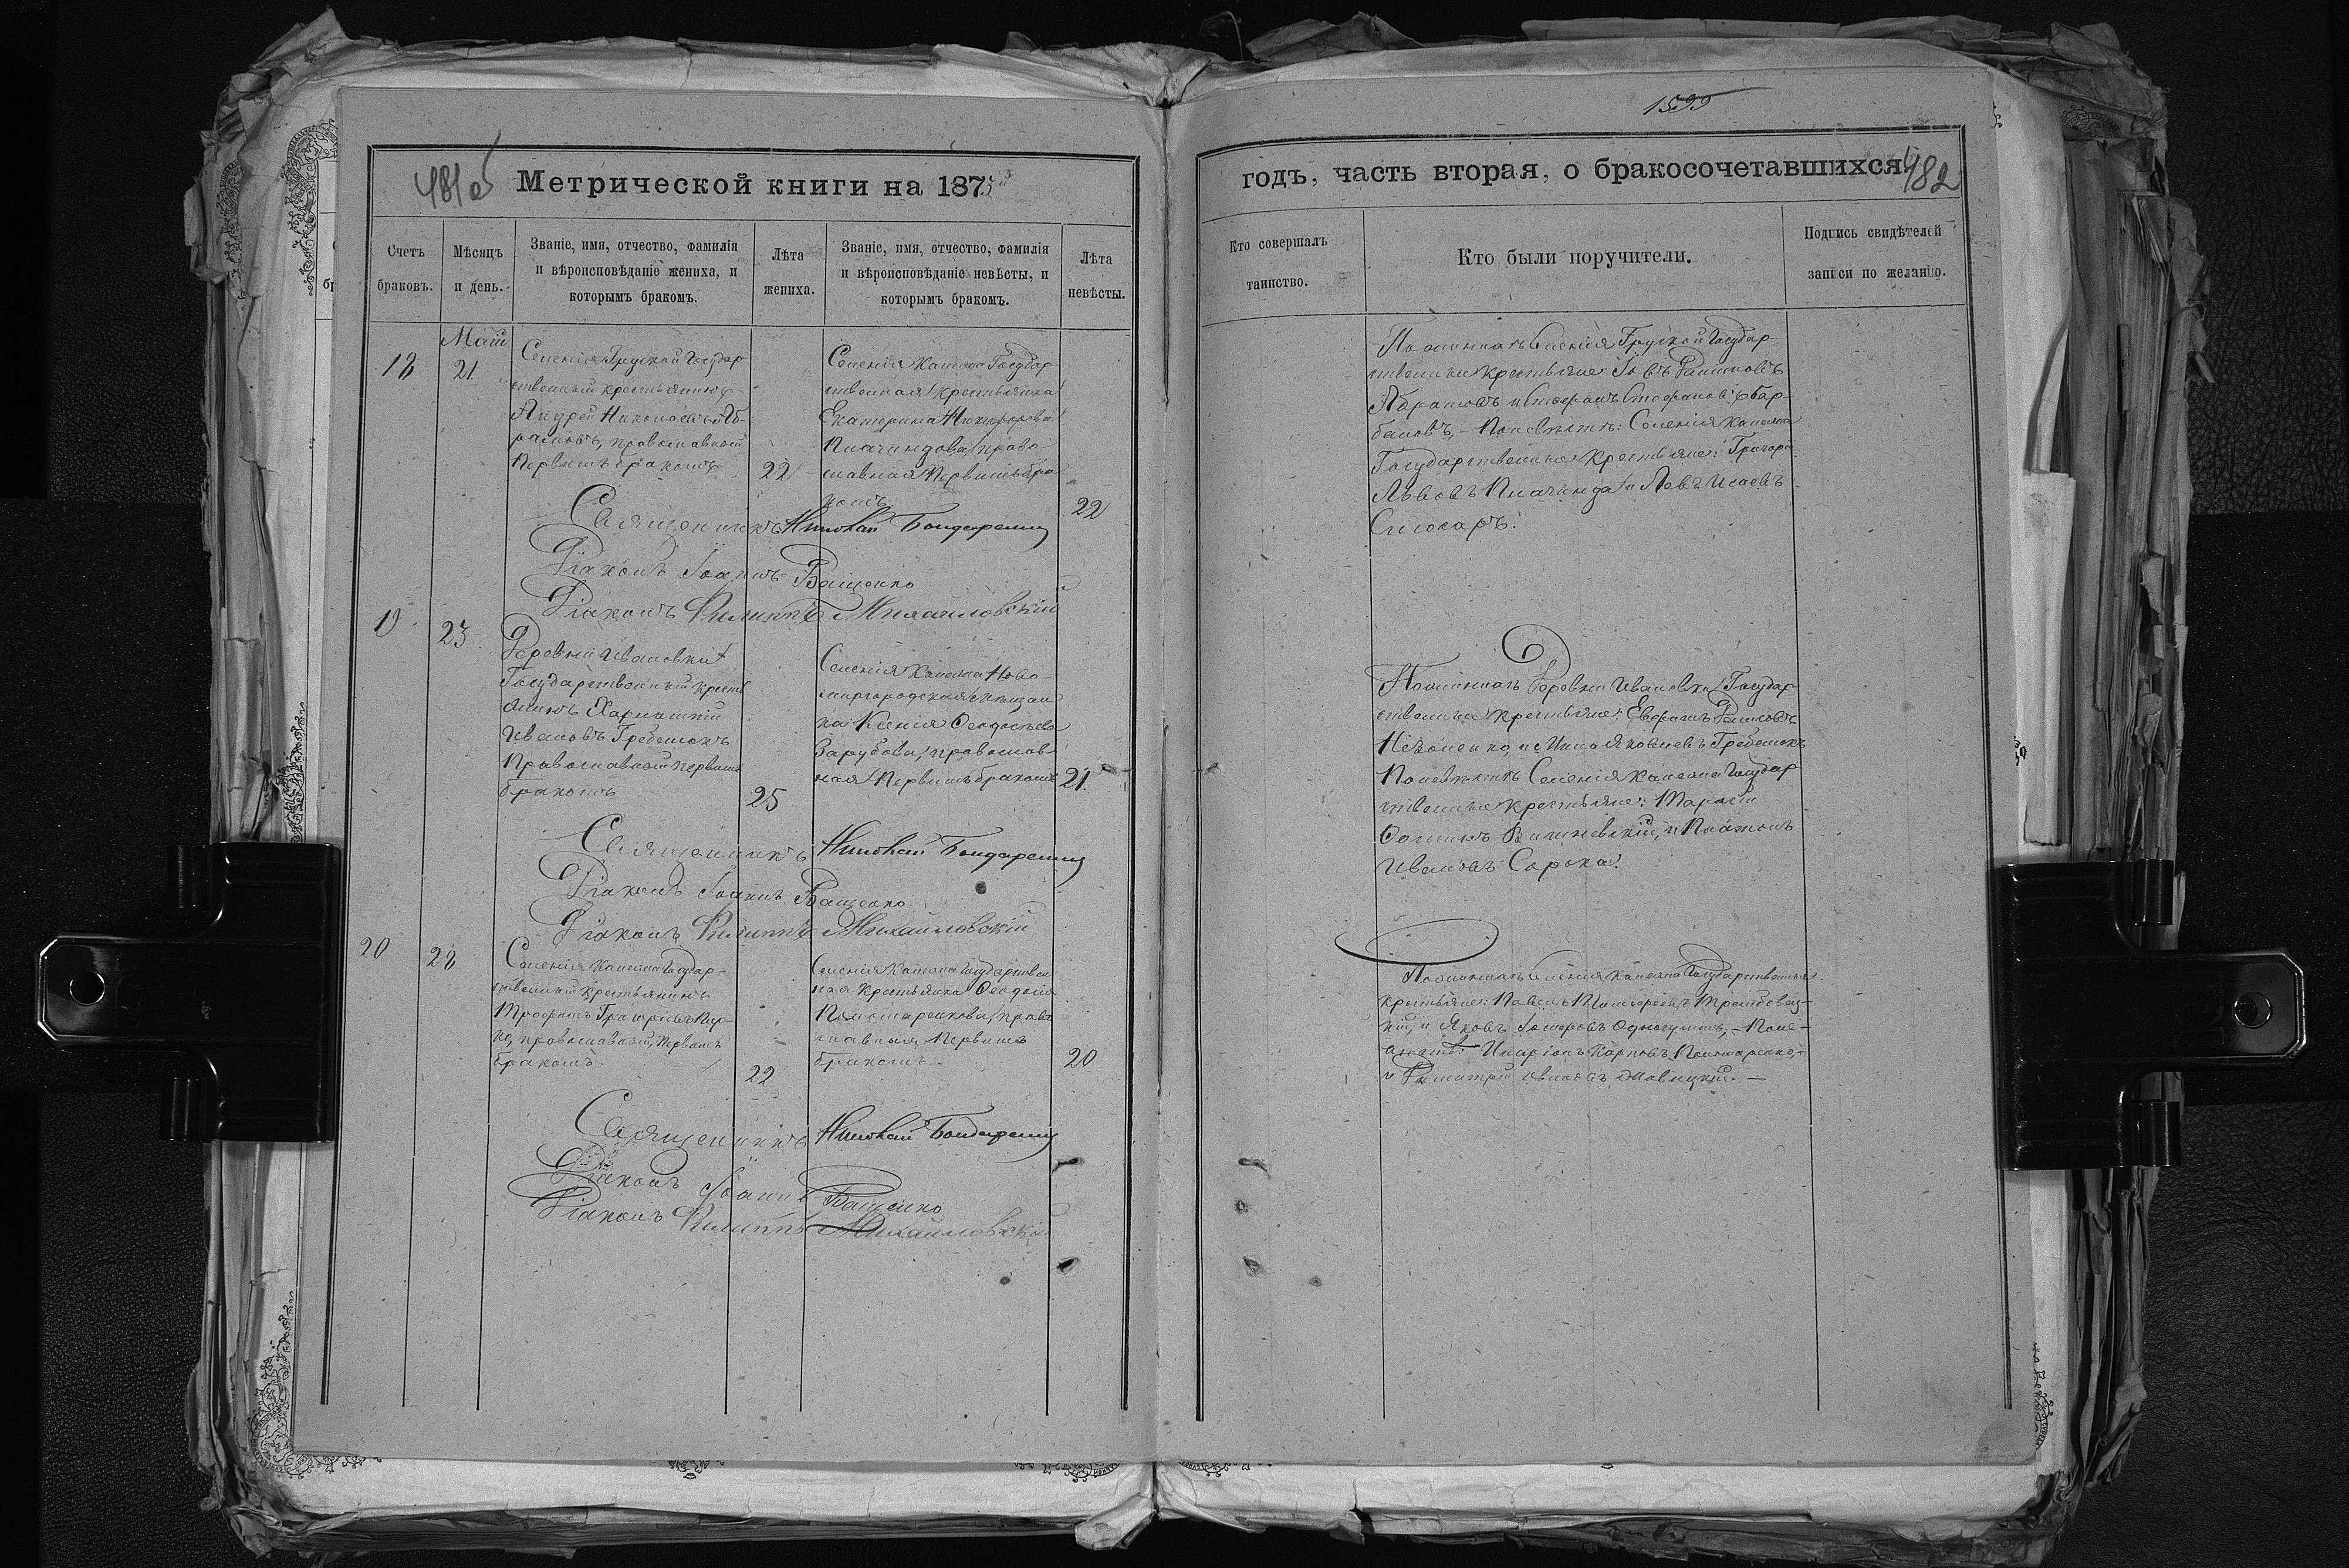 1599
481об
Метрической книги на 1875й
годъ, часть вторая, о бракосочетавшихся
482
Счетъ браковъ.
Мѣсяцъ и день.
Званіе, имя, отчество, фамилія
и вѣроисповѣданіе жениха, и
которымъ бракомъ.
Лѣта жениха.
Званіе, имя, отчество, фамилія
и вѣроисповѣданіе невѣсты, и
которымъ бракомъ.
Лѣта невѣсты.
Кто совершалъ таинство.
Кто были поручители.
Подпись свидѣтелей
записи по желанію.
18
Маій
21.
Селенія Грузкой Государ-
ственный крестьянинъ
Андрей Николаевъ Аб-
рамовъ, православный
Первымъ бракомъ
22
Селенія Канежа Государ
ственная крестьянка
Екатерина Никифорова
Плачиндова, право-
славная Первымъ бра-
комъ
22
Священникъ Николай Бондаренко
Діаконъ Іоаннъ Ващенко
Діаконъ Филиппъ Михайловскій
По женихѣ Селенія Грузкой Государ-
ственные крестьяне: Іовъ
Абрамовъ и Стефанъ Стефановъ
По невѣстѣ: Селенія Канежа
Государственные крестьяне: Григорій
Львовъ Плачинда и Левъ Исаевъ
Слюсаръ.
19
23
Деревни Ивановки
Государственный кресть
янинъ Харлампій
Ивановъ Гребенюкъ
Православный первымъ
бракомъ
25
Селенія Канежа Ново-
миргородская мѣщан
ка Ксенія Феодосіева
Зарубова, православ-
ная Первымъ бракомъ
21.
Священникъ Николай Бондаренко
Діаконъ Іоаннъ Ващенко
Діаконъ Филиппъ Михайловскій
По женихѣ Деревни Ивановки Государ-
ственные крестьяне:
и Яковлевъ Гребенюкъ
По невѣстѣ Селенія Канежа Государ
ственные крестьяне: Тарасій
Фоминъ Вишневскій, и Платонъ
Ивановъ Сорока.
20
28
Селенія Канежа Государ-
ственный крестьянинъ
Трофимъ Григоріевъ
православный, Первымъ
бракомъ.
22
Селенія Канежа Государствен
ная крестьянка Феодосія
Пономаренкова, право
славная Первымъ
бракомъ.
20
Священникъ Николай Бондаренко
Діаконъ Іоаннъ Ващенко
Діаконъ Филиппъ Михайловскій
По женихѣ Селенія Канежа Государственные
крестьяне: Павелъ
и Яковъ — По не-
вѣстѣ: Иларіонъ Карповъ Пономаренко,
и Димитрій Ивановъ —